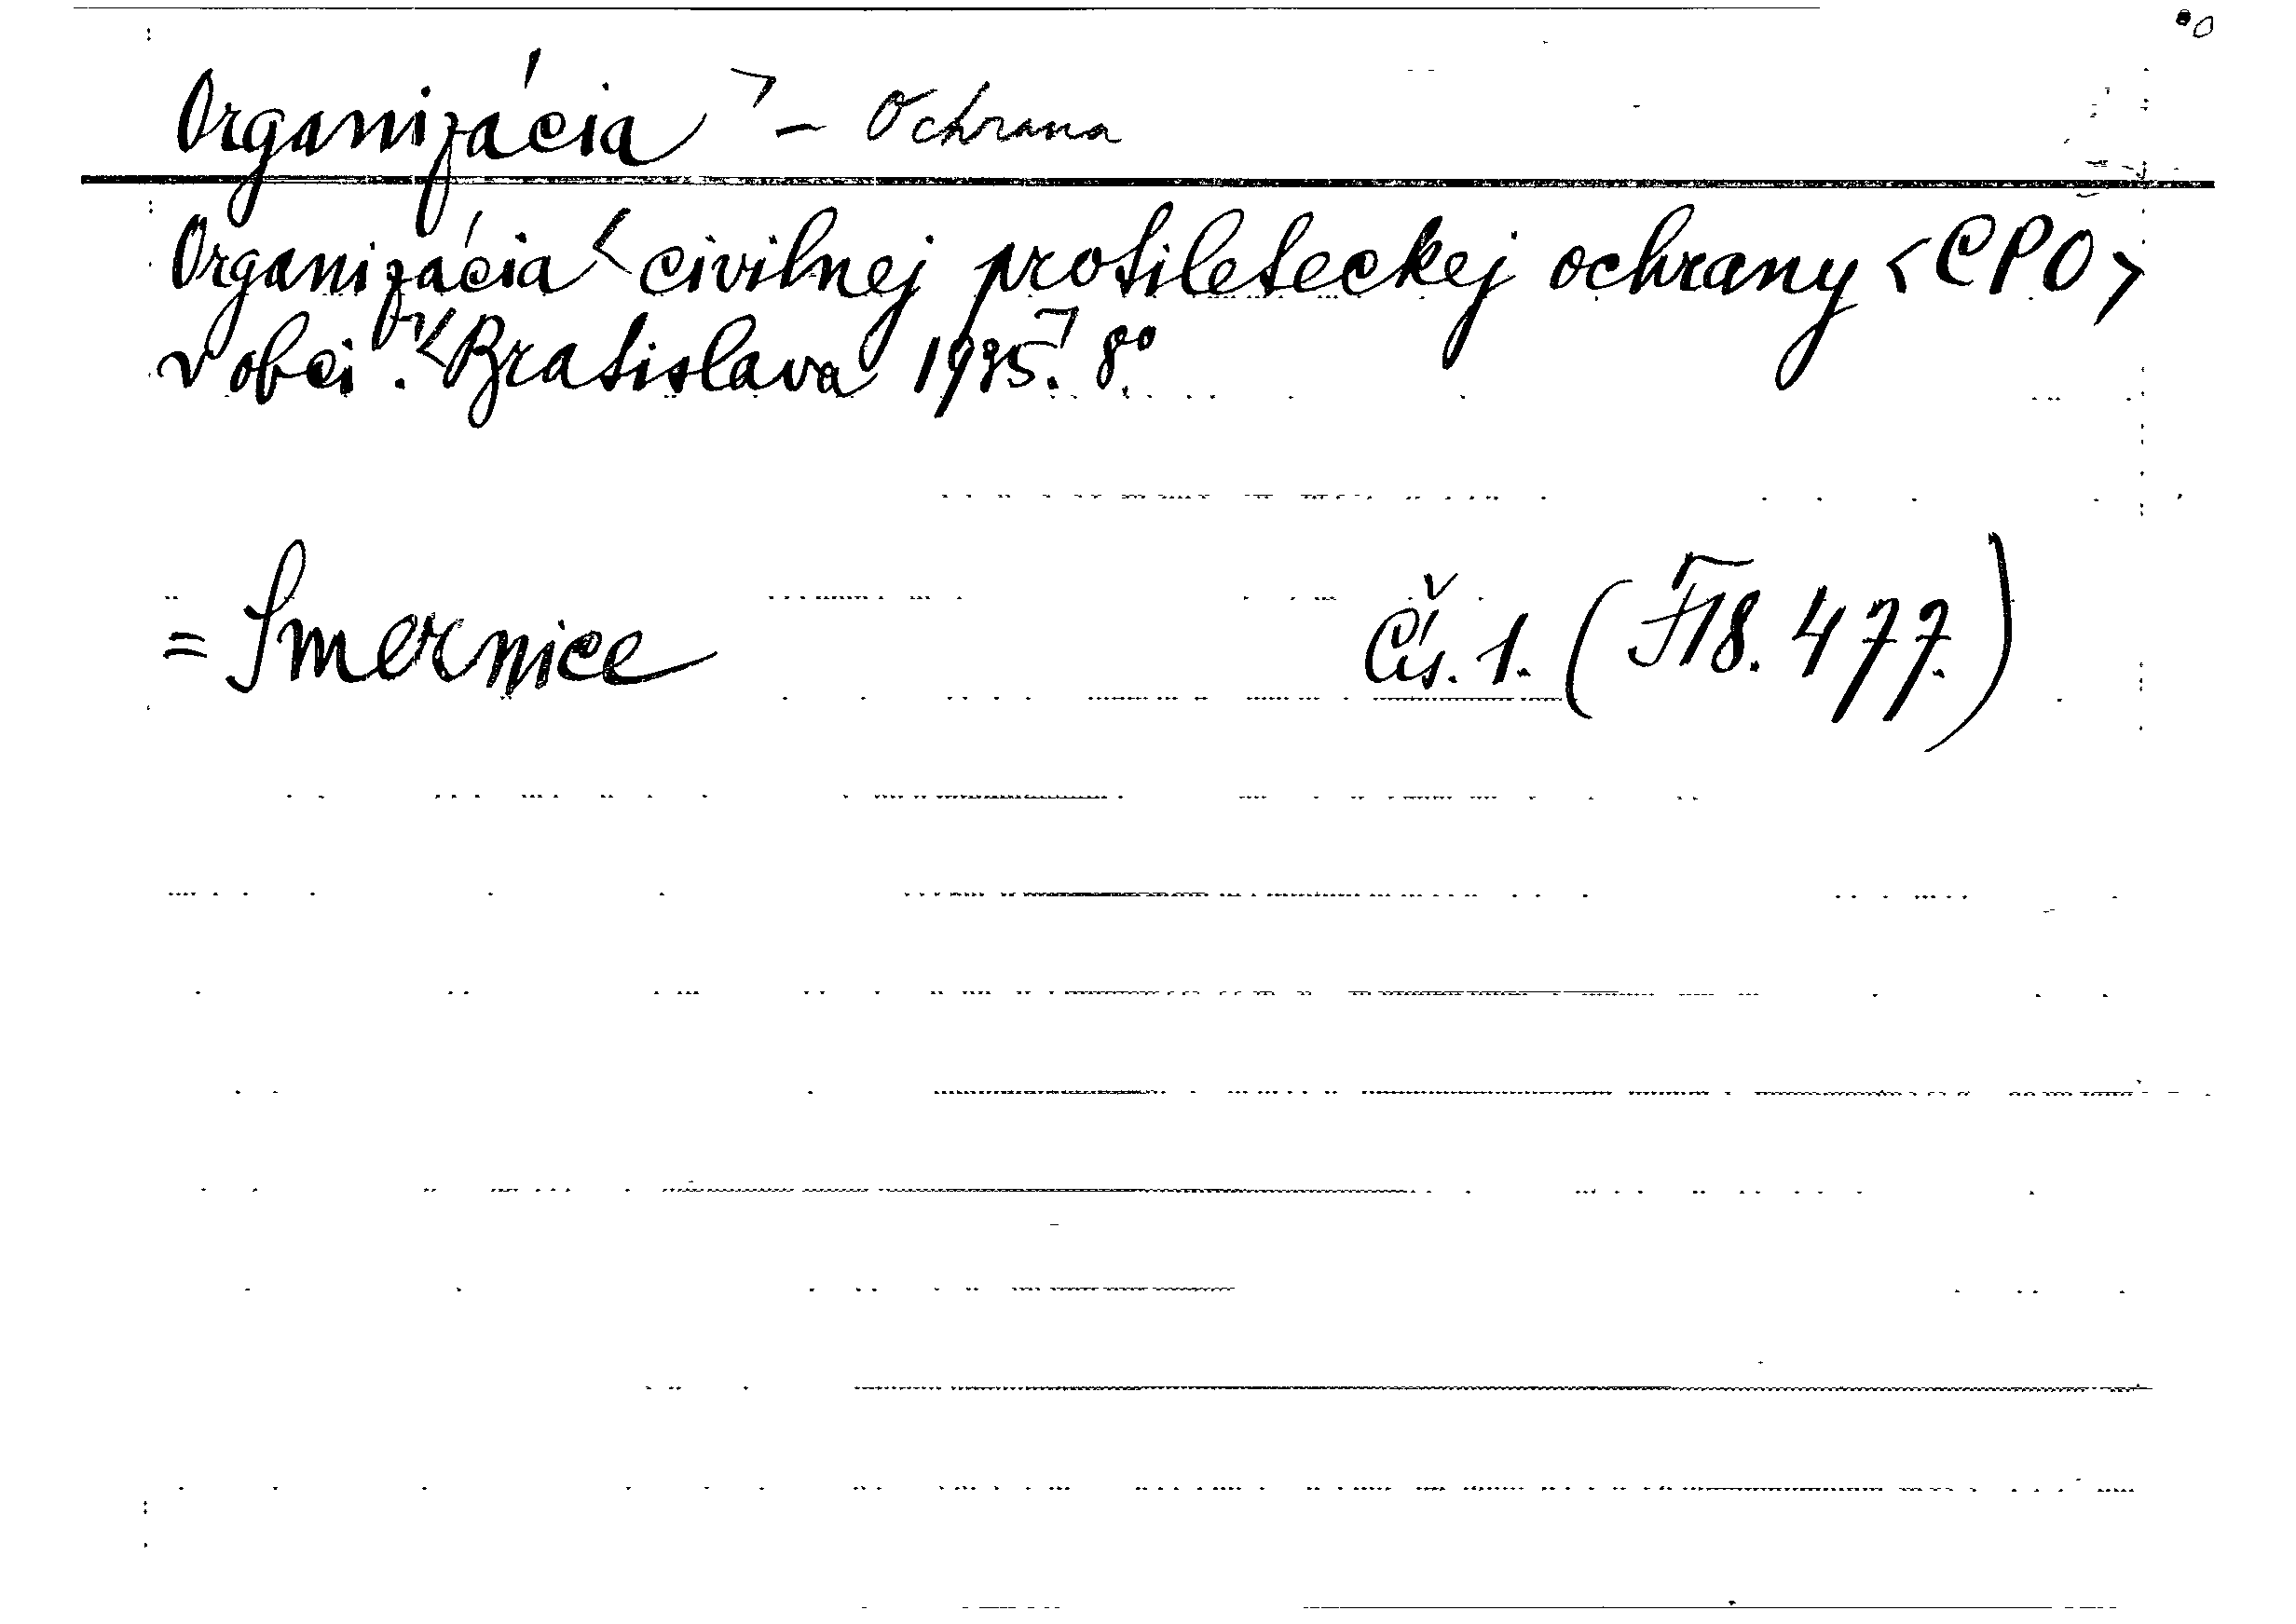 Organizácia ⁊ - Ochrana
Organizácia < civilnej protileteckej ochrany <CPO>
v obci. < Bratislava 1935. ⁊ 8°
= Smernice Čís. 1. (F18. 477.)